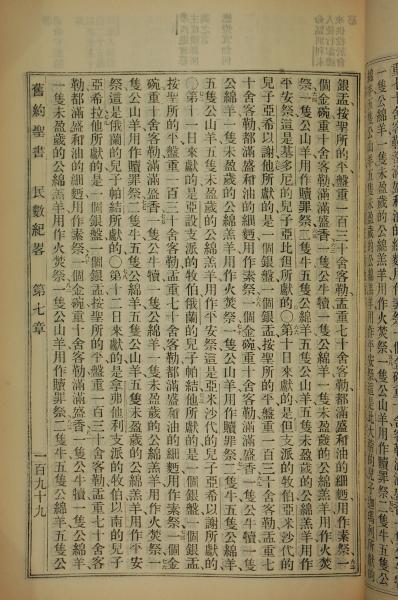 銀盂按聖所的平盤重一百三十舍客勒都滿盛和油的細麵用作素祭一
個金碗重十舍客勒滿滿盛香一隻公牛犢一隻公綿羊一隻未盈歲的公綿羔羊用作火焚
祭一隻公山羊用作贖罪祭二隻牛五隻公綿羊五隻公山羊五隻未盈歲的公綿羔羊用作
平安祭這是基多尼的兒子亞比但所獻的〇第十日來獻的是但支派的牧伯亞米沙代的
兒子亞希以謝他所獻的是一個銀盤一個銀盂按聖所的平盤重一百三十舍客勒盂重七
十舍客勒都滿盛和油的細麵用作素祭一個金碗重十舍客勒滿滿盛香一隻公牛犢一隻
公綿羊一隻未盈歲的公綿羔羊用作火焚祭一隻公山羊用作贖罪祭二牛五隻公綿羊
五隻公山羊五隻未盈歲的公綿羔羊用作平安祭這是亞米沙代的兒子亞希以謝所獻的
〇第十一日來獻的是亞設支派的牧伯俄蘭的兒子帕結他所獻的是一個銀盤一個銀盂
按聖所的平盤重一百三十舍客勒盂重七十舍客勒都滿盛和油的細麵用作素祭一個金
碗重十舍客勒滿滿盛香一隻公牛犢一隻公綿羊一隻未盈歲的公綿羔羊用作火焚祭一
隻公山羊用作贖罪祭二牛五隻公綿羊五隻公山羊五隻未盈歲的公綿羔羊用作平安
祭這是俄蘭的兒子帕結所獻的〇第十二日來獻的是拿弗他利支派的牧伯以南的兒子
亞希拉他所獻的是一個銀盤一個銀盂按聖所的平盤重一百三十舍客勒盂重七十舍客
勒都滿盛和油的細麵用作素祭一個金碗重十舍客勒滿滿盛香一隻公牛犢一隻公綿羊
一隻未盈歲的公綿羔羊用作火焚祭一隻公山羊用作贖罪祭二牛五隻公綿羊五隻公
舊約聖書 民數紀畧 第七章 一百九十九